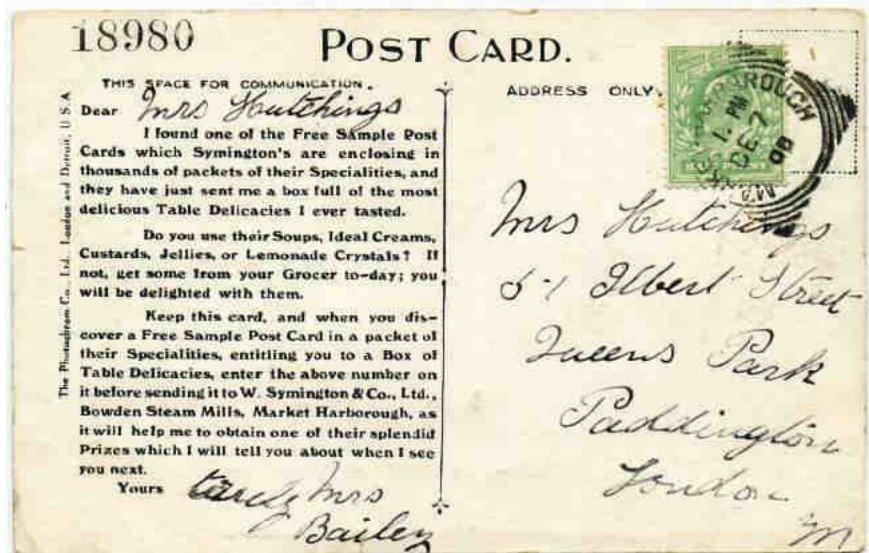 18980
POST CARD.
THIS SPACE FOR COMMUNICATION.
Dear Mrs Hutchings
I found one of the Free Sample Post
Cards which Symington's are enclosing in
thousands of packets of their Specialities, and
they have just sent me a box full of the most
delicious Table Delicacies I ever tasted.
Do you use their Soups, Ideal Creams,
Custards, Jellies, or Lemonade Crystals? If
not, get some from your Grocer to-day; you
will be delighted with them.
Keep this card, and when you dis-
cover a Free Sample Post Card in a packet of
their Specialities, entitling you to a Box of
Table Delicacies, enter the above number on
it before sending it to W. Symington & Co., Ltd.,
Bowden Steam Mills, Market Harborough, as
it will help me to obtain one of their splendid
Prizes which I will tell you about when I see
you next.
Yours truly Mrs
Bailey
The Photochrom Co., Ltd. London and Detroit, U.S.A
ADDRESS ONLY
MARKET HARBOROUGH
1. PM
DE 7
Mrs Hutchings
51 Ilbert Street
Queens Park
Paddington
London
M